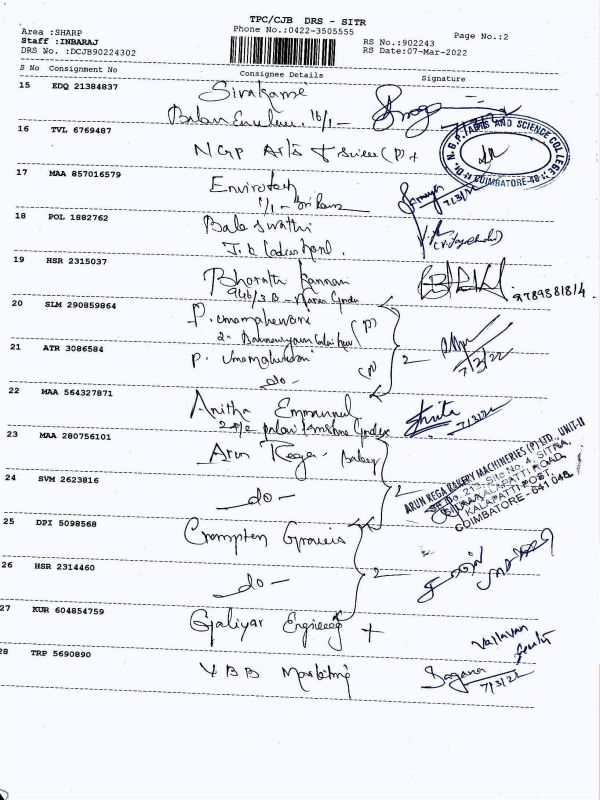 TPC/CJB DRS - SITR
Area :SHARP
Phone No.:0422-3505555
Page No.:2
Staff :INBARAJ
RS No.:902243
DRS No. :DCJB90224302
RS Date:07-Mar-2022
S No Consignment No
Consignee Details
Signature
15 EDQ 21384837
Sivakami
16/1 -
7/3/22
16 TVL 6769487
NGP Arts & Science (P) +
Dr. N.G.P. ARTS AND SCIENCE COLLEGE
COIMBATORE-48
17 MAA 857016579
Envirotech
1/1 - Sri Ram
7/3/22
18 POL 1882762
Bala swathi
19 HSR 2315037
Bharath Kannan
946/3 B -
9789881814
20 SLM 290859864
P. Umamaheswari
2- (P)
21 ATR 3086584
P. Umamaheswari
do - (P)
2
7/3/22
22 MAA 564327871
Anitha Emmanuel
Anita
7/3/22
23 MAA 280756101
Arun Rega - Bakery
2
ARUN REGA BAKERY MACHINERIES (P) LTD., UNIT-II
SF.No. 212, Site No. 4, SITRA,
KALAPATTI ROAD,
KALAPATTI POST,
COIMBATORE - 641 048.
24 SVM 2623816
do -
25 DPI 5098568
Crompton Greaves
2
26 HSR 2314460
do -
27 KUR 604854759
Galiyar Engineeg +
Vallavan
28 TRP 5690890
YBB Marketing
Sagana
7/3/22